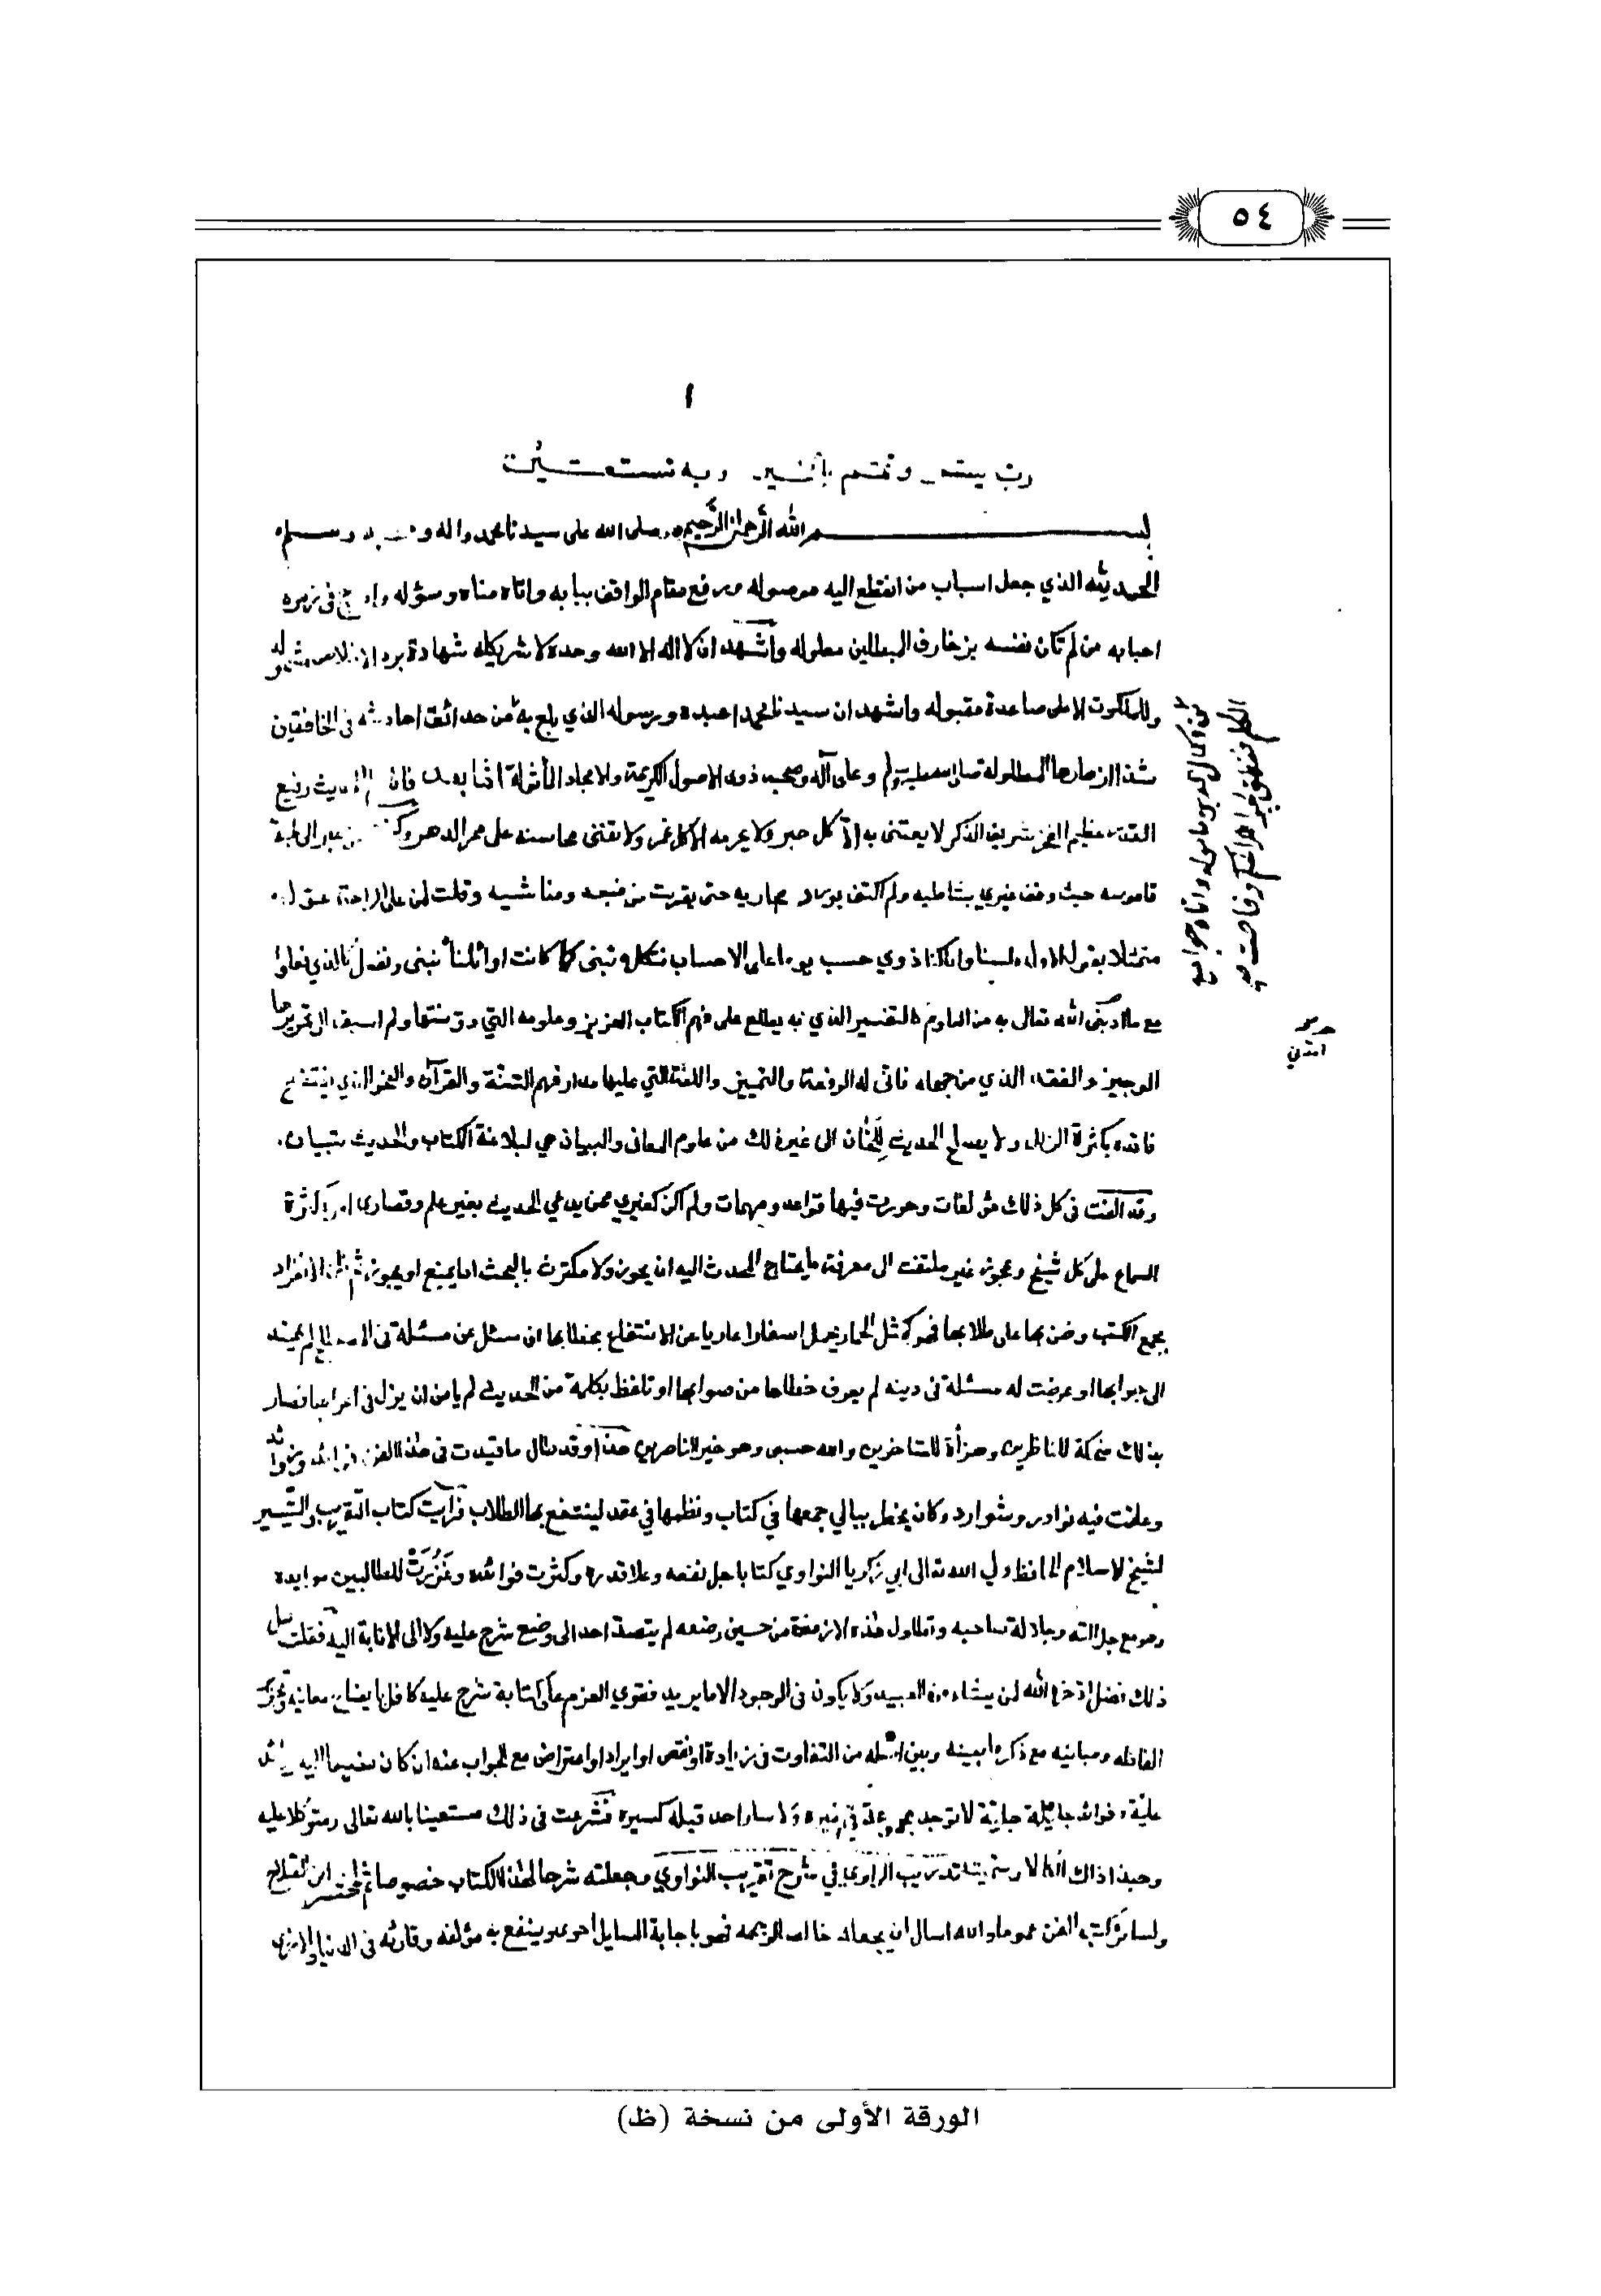 ٥٤
١
رب يسر وتمم بالخير وبه نستعين
بسم الله الرحمن الرحيم وصلى الله على سيدنا محمد واله وسلم
الحمد لله الذي جعل اسباب من انقطع اليه موصوله ورفع مقام الواقف ببابه واتاه مناه وسؤله وادرج في زمرة
احبابه من لم تكن نفسه بزخارف المبطلين معلوله واشهد ان لا اله الا الله وحده لا شريك له شهادة برد الاخلاص مشموله
وللملكوت الاعلى صاعدة مقبوله واشهد ان سيدنا محمدا عبده ورسوله الذي بلغ به من حدائق احاديثه في الخافقين
شذا ازهارها المطلوله صلى الله عليه وسلم وعلى آله وصحبه ذوي الاصول الكريمة والامجاد المأثولة اما بعد فان الحديث رفيع
القدر عظيم الفخر شريف الذكر لا يعتنى به الا كل حبر ولا يحرمه الا كل غمر ولا تفنى محاسنه على ممر الدهر وكنت ممن عبر الى لجة
قاموسه حيث وقف غيري بشاطيه ولم اكتف بورود مجاريه حتى بقرت عن منبعه ومناشيه وقلت لمن على الراحة عول
متمثلا بقول الاول لسنا وان كنا ذوي حسب يوما على الاحساب نتكل نبني كما كانت اوائلنا تبني ونفعل كالذي فعلوا
مع ما امدني الله تعالى به من العلوم كالتفسير الذي به يطلع على فهم الكتاب العزيز وعلومه التي دونتها ولم اسبق الى تحريرها
الوجيز والفقه الذي من جهله فاتى له الرفعة والتمييز واللغة التي عليها مدار فهم السنة والقرآن والنحو الذي يفتضح
فاقده بكثرة الزلل ولا يصلح الحديث للحان الى غير ذلك من علوم المعاني والبيان هي لبلاغة الكتاب والحديث تبيان
وقد الفت في كل ذلك مؤلفات وحررت فيها قواعد ومهمات ولم اكن كغيري ممن يدعي الحديث بغير علم وقصارى امره كثرة
السماع على كل شيخ وعجوز غير ملتفت الى معرفة ما يحتاج المحدث اليه ان يحوز ولا مكترث بالبحث عما يمنع او يجوز ثم ظن الانفراد
بجمع الكتب وضن بها على طلابها فهو كمثل الحمار يحمل اسفارا عاريا عن الانتفاع بخطابها ان سئل عن مسئلة في الاصطلاح لم يهتد
الى جوابها او عرضت له مسئلة في دينه لم يعرف خطاها من صوابها او تلفظ بكلمة من الحديث لم يامن ان يزل في اعرابها فصار
بذلك ضحكة للناظرين وهزأة للساخرين والله حسبي وهو خير الناصرين هذا وقد طال ما قيدت في هذا الفن فوائد وزوائد
وعلقت فيه نوادر وشوارد وكان يخطر ببالي جمعها في كتاب ونظمها في عقد لينتفع بها الطلاب فرأيت كتاب التقريب والتيسير
لشيخ الاسلام الحافظ ولي الله تعالى ابي زكريا النواوي كتابا جل نفعه وعلا قدره وكثرت فوائده وغزرت للطالبين موايده
وهو مع جلالته وجلالة صاحبه وتطاول هذه الازمنة من حين وضعه لم يتصد احد الى وضع شرح عليه ولا الى الانابة اليه فقلت لعل
ذلك فضل ادخره الله لمن يشاء من العبيد ولا يكون في الوجود الا ما يريد فقوي العزم على كتابة شرح عليه كافل بايضاح معانيه وتحرير
الفاظه ومبانيه مع ذكر ما بينه وبين اصله من التفاوت في زيادة او نقص او ايراد او اعتراض مع الجواب عنه ان كان مضيفا اليه زوائد
علية وفوائد جليلة جلية لا توجد مجموعة في غيره ولا سار احد قبله كسيره فشرعت في ذلك مستعينا بالله تعالى ومتوكلا عليه
وحبذا ذاك اتكالا وسميته تدريب الراوي في شرح تقريب النواوي وجعلته شرحا لهذا الكتاب خصوصا ثم لمختصر ابن الصلاح
ولسائر كتب الفن عموما والله اسال ان يجعله خالصا لوجهه فهو باجابة السايل احرى وينفع به مؤلفه وقارئه في الدنيا والاخرى
الورقة الأولى من نسخة (ظ)